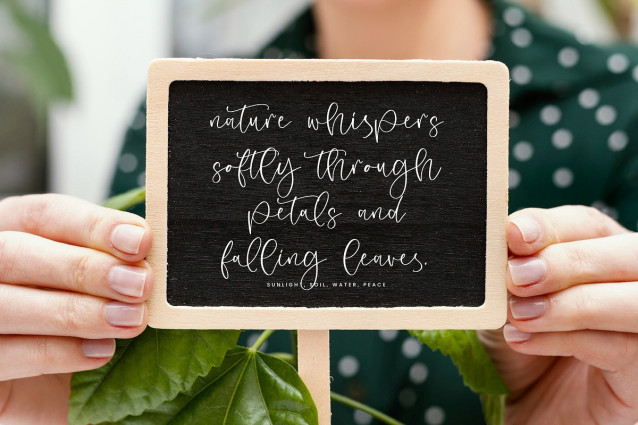 nature whispers
softly through
petals and
falling leaves.
SUNLIGHT, SOIL, WATER, PEACE